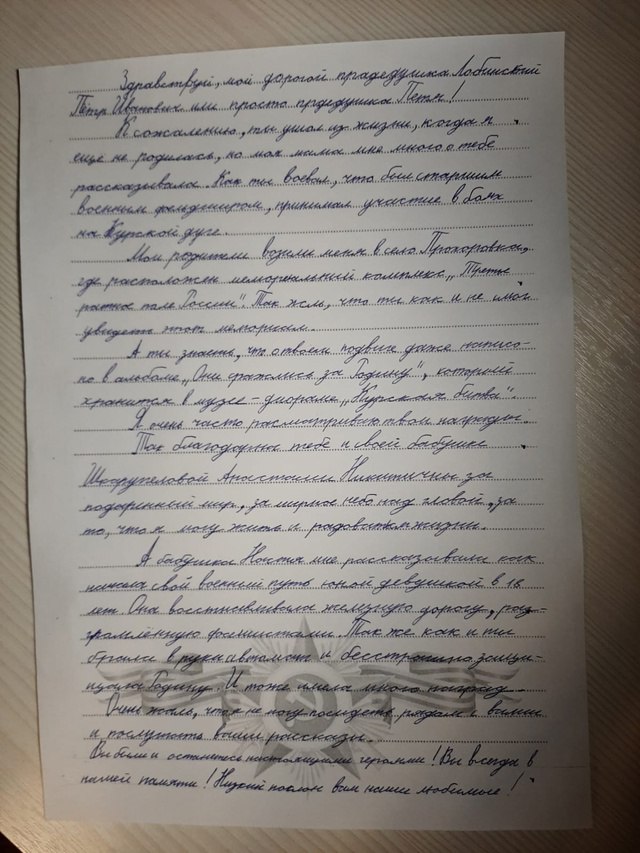 Здравствуй, мой дорогой прадедушка Лобинский
Пётр Иванович или просто прдедушка Петя!
К сожалению, ты ушел из жизни, когда я
еще не родилась, но моя мама мне много о тебе
рассказывала. Как ты воевал, что был старшим
военным фельдшером, принимал участие в боях
на Курской дуге.
Мои родители возили меня в село Прохоровка,
где расположен мемориальный комплекс „Третье
ратное поле России". Так жаль, что ты как и не смог
увидеть этот мемориал.
А ты знаешь, что о твоем подвиге даже написа-
но в альбоме „Они сражались за Родину", который
хранится в музее-диораме „Курская битва".
Я очень часто рассматриваю твои награды.
Так благодарна тебе и своей бабушке
Шкрупеловой Анастасии Никитичны за
подаренный мир, за мирное небо над головой, за
то, что я могу жить и радоваться жизни.
А бабушка Настя мне рассказывала как
начала свой военный путь юной девушкой в 18
лет. Она восстанавливала железную дорогу, раз-
громлённую фашистами. Так же как и ты
брала в руки автомат и бесстрашно защи-
щала Родину. И тоже имела много наград.
Очень жаль, что я не могу посидеть рядом с вами
и послушать ваши рассказы.
Вы были и останетесь настоящими героями! Вы всегда в
нашей памяти! Низкий поклон вам наши любимые!